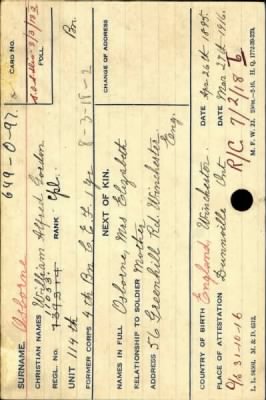 649-0-97.
CARD NO.
FOLL.
SURNAME. Osborne
CHRISTIAN NAMES William Alfred Gordon
REGL. No. RANK Cpl.
UNIT 114th Bn
FORMER CORPS 4th Bn C.E.F. 1 yr 8-3-15-2
CHANGE OF ADDRESS
NEXT OF KIN.
NAMES IN FULL Osborne, Mrs Elizabeth
RELATIONSHIP TO SOLDIER Mother
ADDRESS 56 Greenhill Rd. Winchester
Eng.
COUNTRY OF BIRTH England, Winchester. DATE Apr 26th 1895.
PLACE OF ATTESTATION Dunnville Ont DATE Mar 27th 1916.
O/S 31-10-16 R/C. 7/2/18
L. L. M. & D. M. F. W. 23. H. Q. 1772-39-339.